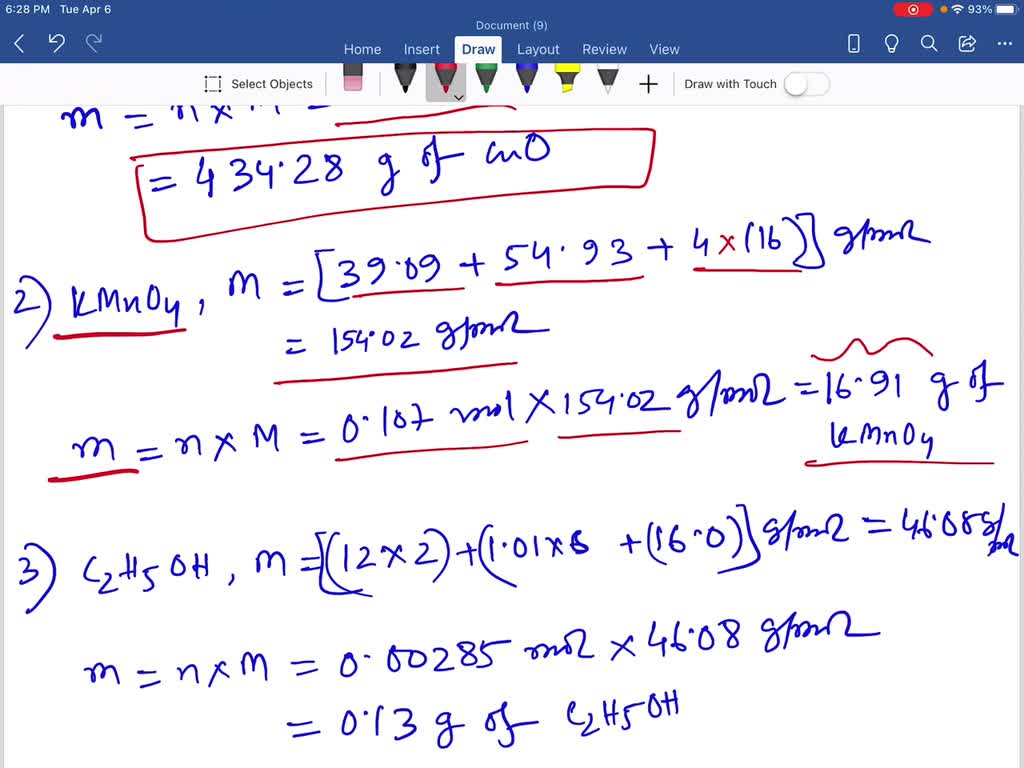 6:28 PM Tue Apr 6
93%
Document (9)
Home Insert Draw Layout Review View
Select Objects
Draw with Touch
m = n x M =
= 434.28 g of CuO
2) KMnO4, M = [39.09 + 54.93 + 4 x (16)] g/mol
= 154.02 g/mol
m = n x M = 0.107 mol x 154.02 g/mol = 16.91 g of
KMnO4
3) C2H5OH, M = [(12 x 2) + (1.01 x 6 + (16.0)] g/mol = 46.08 g/mol
m = n x M = 0.00285 mol x 46.08 g/mol
= 0.13 g of C2H5OH